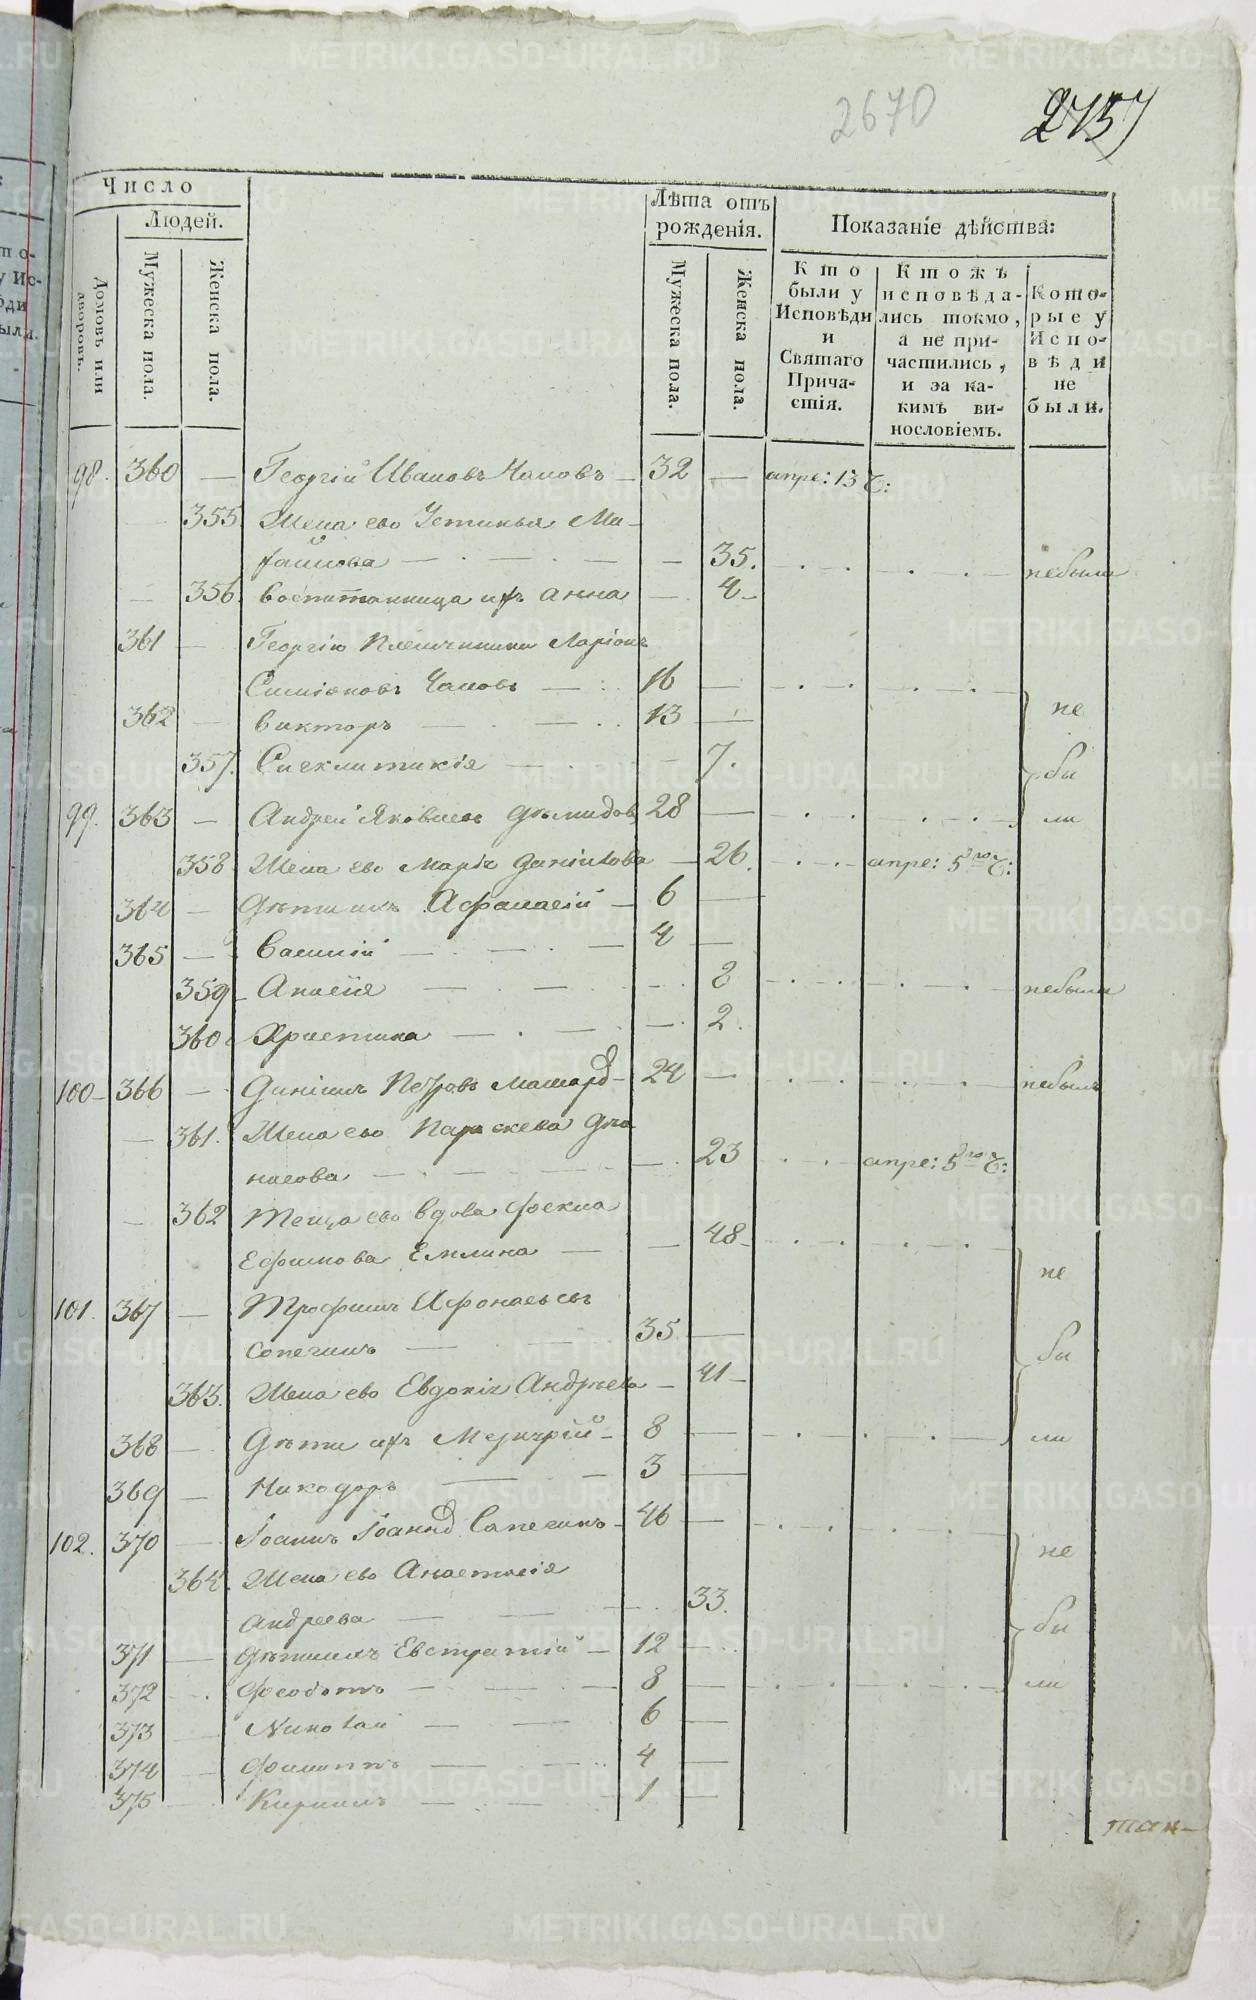 2670
2757
Число
Людей.
Домовъ или дворовъ.
Мужеска пола.
Женска пола.
Лѣта отъ рожденія.
Мужеска пола.
Женска пола.
Показаніе дѣйства:
Кто были у Исповѣди и Святаго Прича-стія.
Ктожъ исповѣда-лись токмо, а не при-частились, и за ка-кимъ ви-нословіемъ.
Кото-рые у Испо-вѣди не были.
98. 360 — Георгій Ивановъ Чаповъ — 32 — апре: 13
355. Жена ево Устинья Ма-
— 35. небыли
356. воспитанница ихъ Анна — 4
361 — Георгію племянники Ларіонъ
Симіоновъ Чаповъ — 16 —
362 — викторъ — 13 — не
357. Сигклитикія — 7. бы
99. 363 — Андрей Яковлевъ Дѣмидовъ 28 — ли
358 Жена ево Марія Даніилова — 26. апре: 5го
364 — Дѣти ихъ Афанасій — 6 —
365 — Василій — 4 —
359 — Анасія — 2 небыли
360 Христина — 2.
100 — 366 — Даніилъ Петровъ — 24 — небылъ
361. Жена ево Параскева Афа
насова — 23 апре: 5го
362 Теща ево вдова Фекла
Ефимова Емлина — 48 не
101. 367 — Трофимъ Афонасьевъ
Сапегинъ — 35 — бы
363. Жена ево Евдокія Андрѣева — 41 —
368 — Дѣти ихъ Меркурій — 8 — ли
369 — Никодоръ — 3 —
102. 370 — Іоаннъ Іоанновъ Сапегинъ — 46 — не
364. Жена ево Анастасія
Андреева — 33. бы
371 — Дѣти ихъ Евстратій — 12 —
372 — Феодотъ — 8 — ли
373 — Николай — 6 —
374 — Филиппъ — 4 —
375 — Кирилъ — 1 —
METRIKI.GASO-URAL.RU